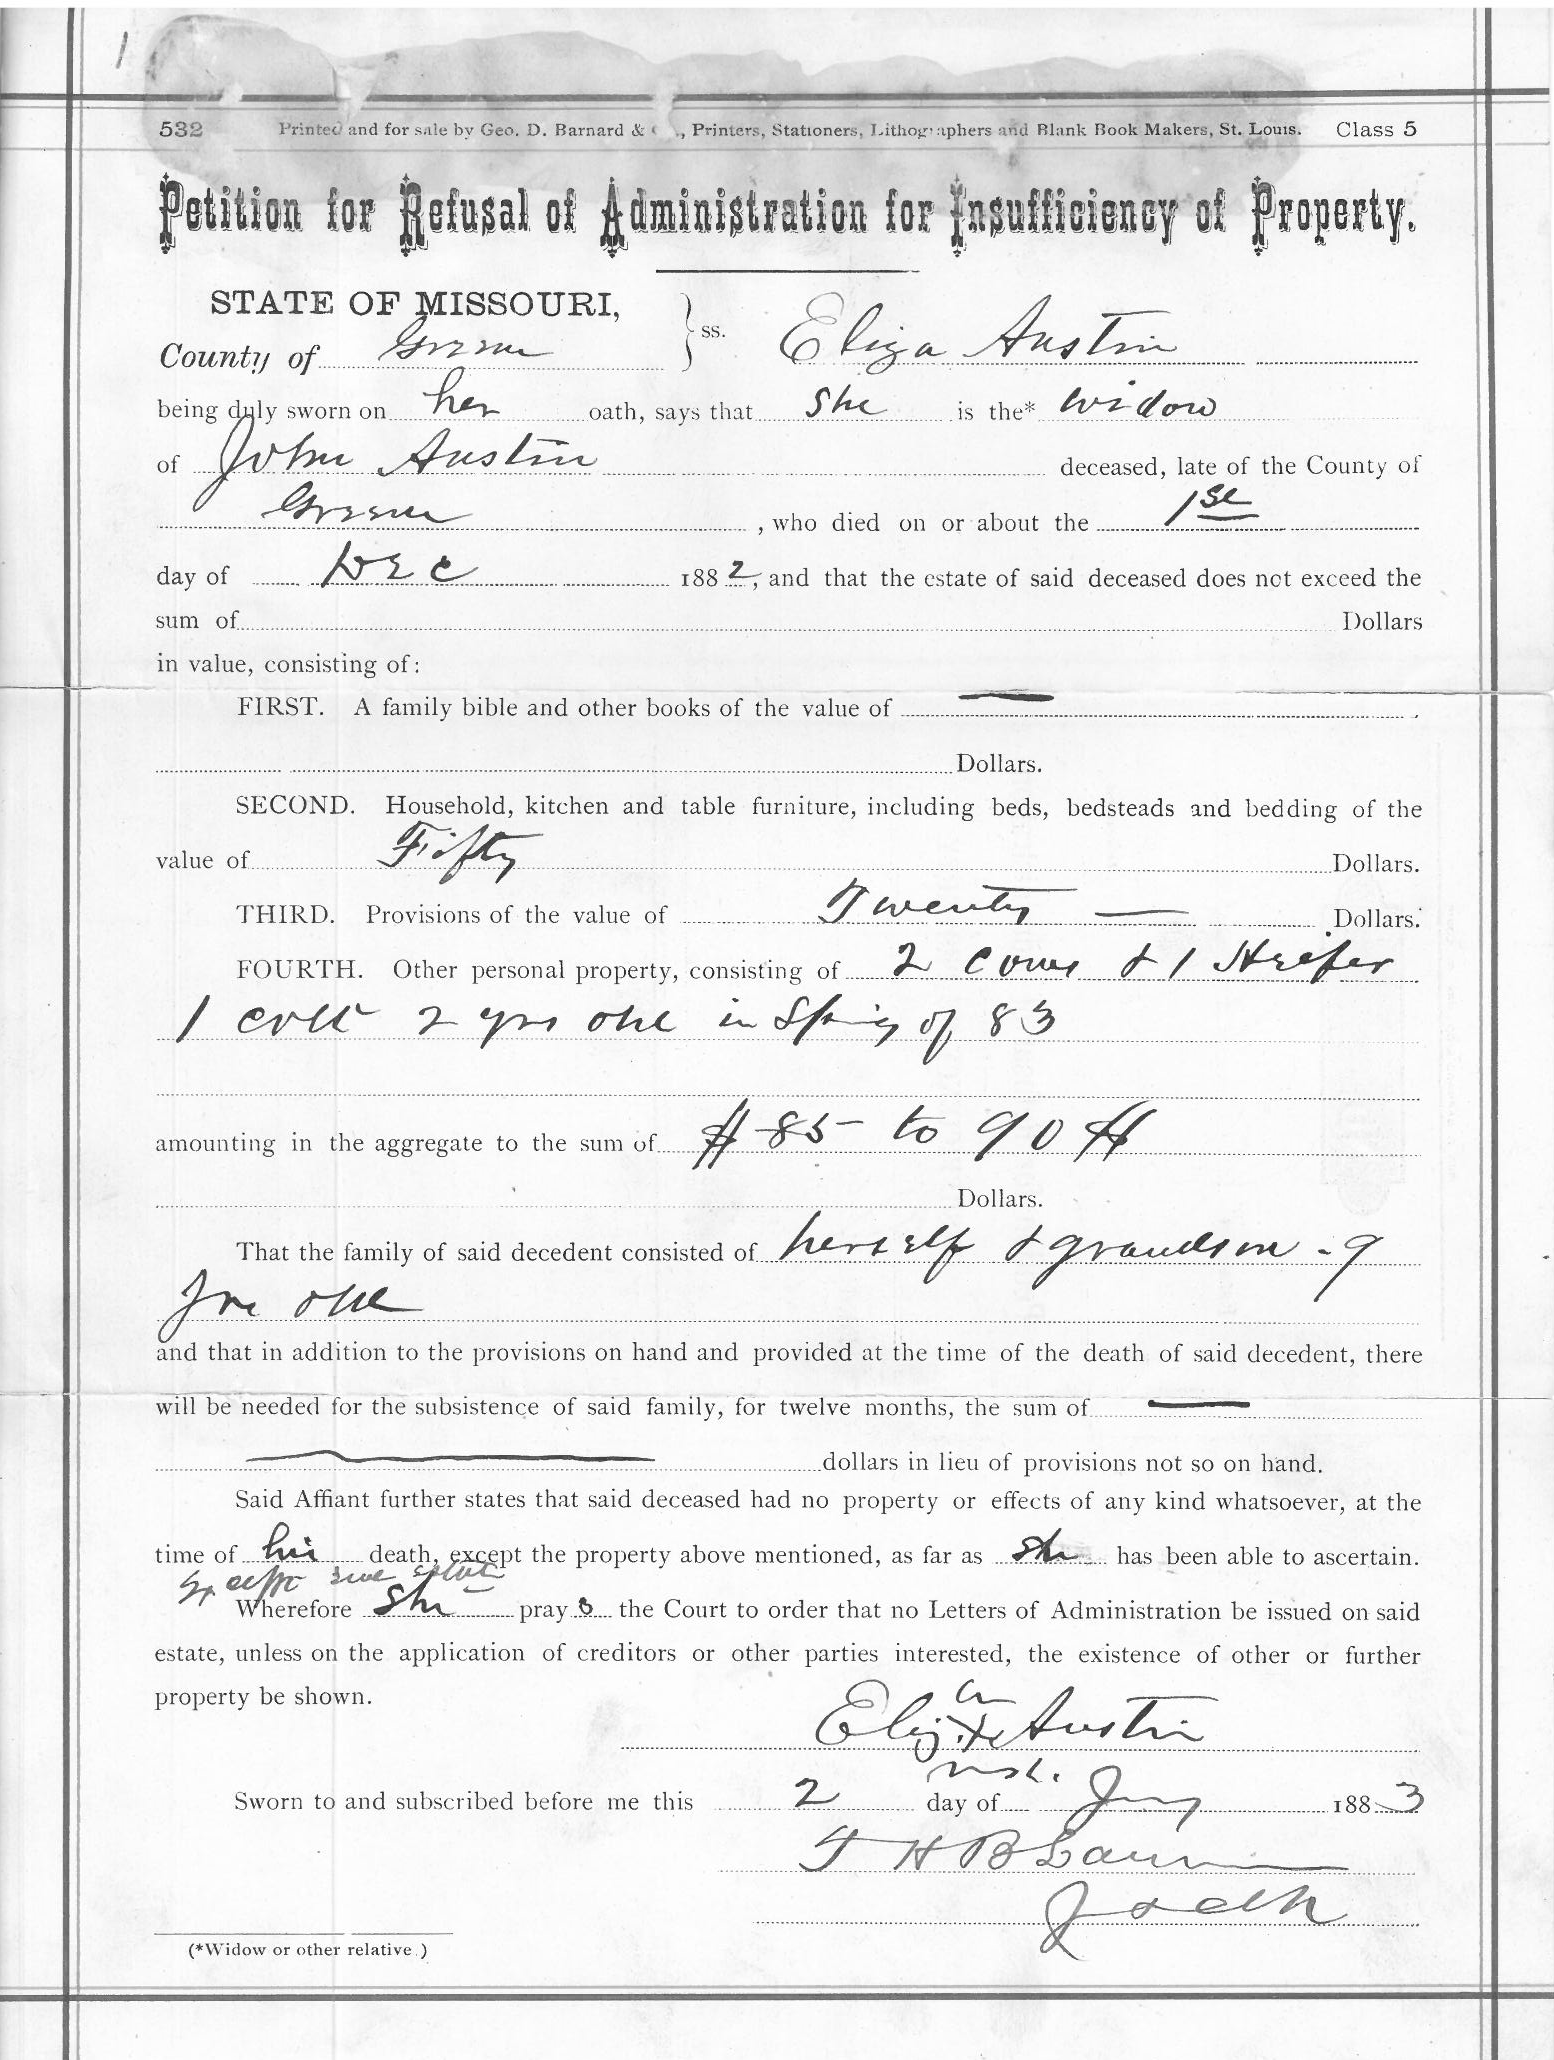 1
532 Printed and for sale by Geo. D. Barnard & , Printers, Stationers, Lithographers and Blank Book Makers, St. Louis. Class 5
Petition for Refusal of Administration for Insufficiency of Property.
STATE OF MISSOURI,
County of Greene } ss. Eliza Austin
being duly sworn on her oath, says that She is the* widow
of John Austin deceased, late of the County of
Greene , who died on or about the 1st
day of Dec 1882, and that the estate of said deceased does not exceed the
sum of Dollars
in value, consisting of:
FIRST. A family bible and other books of the value of —
Dollars.
SECOND. Household, kitchen and table furniture, including beds, bedsteads and bedding of the
value of Fifty Dollars.
THIRD. Provisions of the value of Twenty — Dollars.
FOURTH. Other personal property, consisting of 2 Cows & 1 Heifer
1 colt 2 yrs old in Spring of 83
amounting in the aggregate to the sum of $ 85 to 90 $
Dollars.
That the family of said decedent consisted of herself & grandson - 9
yrs old
and that in addition to the provisions on hand and provided at the time of the death of said decedent, there
will be needed for the subsistence of said family, for twelve months, the sum of —
— dollars in lieu of provisions not so on hand.
Said Affiant further states that said deceased had no property or effects of any kind whatsoever, at the
time of his death, except the property above mentioned, as far as she has been able to ascertain.
Except real estate
Wherefore She prays the Court to order that no Letters of Administration be issued on said
estate, unless on the application of creditors or other parties interested, the existence of other or further
property be shown.
Eliza X Austin
mark.
Sworn to and subscribed before me this 2 day of Jany 1883
T H B
(*Widow or other relative.)